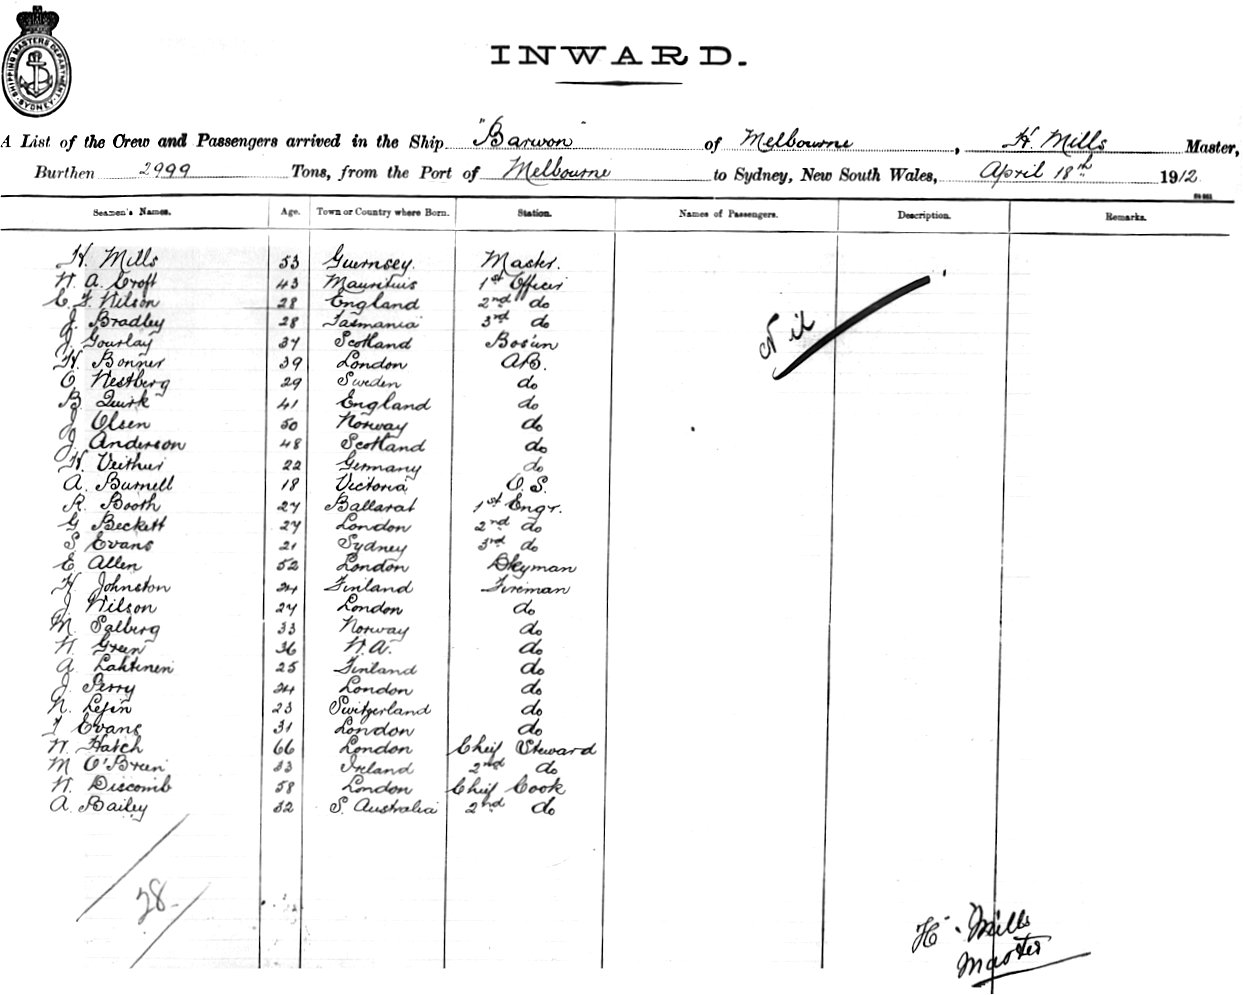 SHIPPING MASTERS DEPARTMENT SYDNEY
INWARD.
A List of the Crew and Passengers arrived in the Ship "Barwon" of Melbourne, H Mills Master,
Burthen 2999 Tons, from the Port of Melbourne to Sydney, New South Wales, April 18th 1912
Seamen's Names. Age. Town or Country where Born. Station. Names of Passengers. Description. Remarks.
H. Mills 53 Guernsey. Master.
W. A. Croft 43 Mauritius 1st Officer
C. F. Wilson 28 England 2nd do
J. Bradley 28 Tasmania 3rd do
J. Gourlay 37 Scotland Bos'un
Nil
H. Bonner 39 London AB.
O. Westberg 29 Sweden do
B. Quirk 41 England do
J. Olsen 50 Norway do
J. Anderson 48 Scotland do
H. 22 Germany do
A. Burnell 18 Victoria O.S.
R. Booth 27 Ballarat 1st Engr.
G. Beckett 27 London 2nd do
S. Evans 21 Sydney 3rd do
E. Allen 52 London Dkyman
H. Johnston 24 Finland Fireman
J. Wilson 27 London do
M. Salberg 33 Norway do
W. Green 36 W.A. do
A. Lahtinen 25 Finland do
J. Perry 24 London do
N. 23 Switzerland do
T Evans 31 London do
W. Hatch 66 London Cheif Steward
M O'Breen 33 Ireland 2nd do
W. Discomb 58 London Chief Cook
A. Bailey 32 S. Australia 2nd do
28
H. Mills
Master